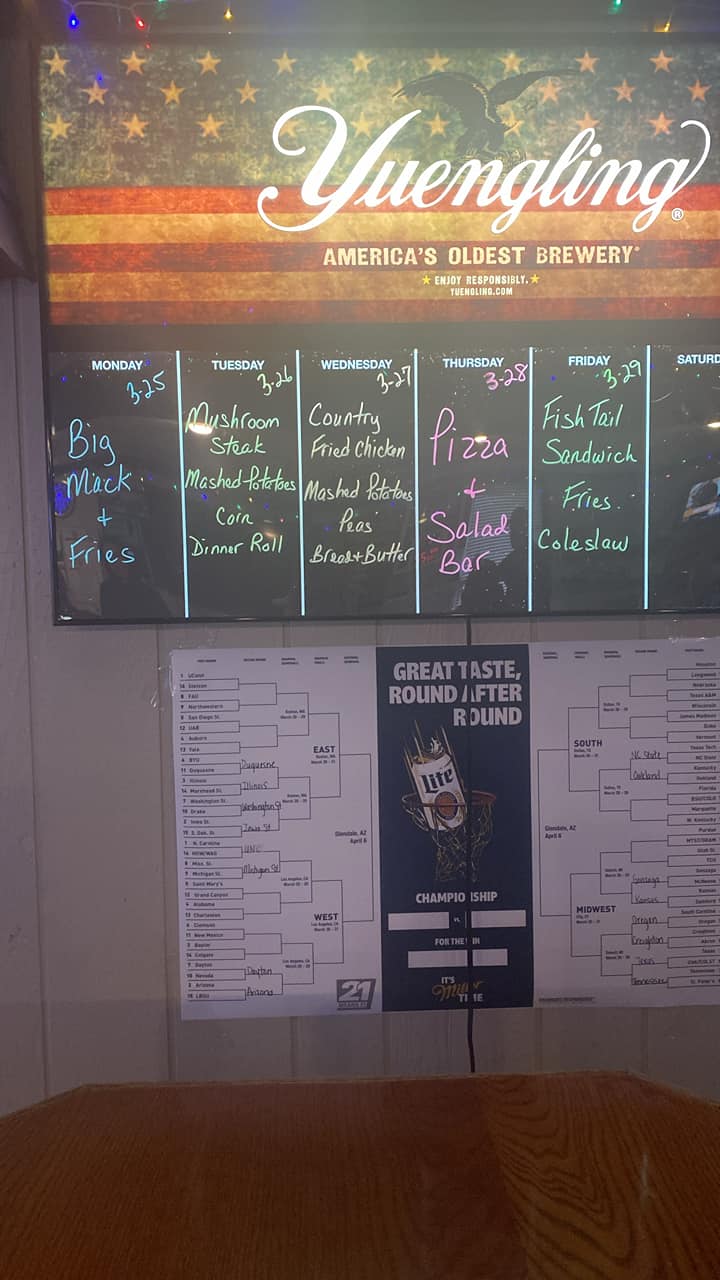 Yuengling®
AMERICA'S OLDEST BREWERY®
★ ENJOY RESPONSIBLY. ★
YUENGLING.COM
MONDAY
3-25
Big
Mack
+
Fries
TUESDAY
3-26
Mushroom
Steak
Mashed Potatoes
Corn
Dinner Roll
WEDNESDAY
3-27
Country
Fried Chicken
Mashed Potatoes
Peas
Bread + Butter
THURSDAY
3-28
Pizza
+
Salad
Bar
FRIDAY
3-29
Fish Tail
Sandwich
Fries
Coleslaw
SATURD
1 UConn
16 Stetson
8 FAU
9 Northwestern
5 San Diego St.
12 UAB
4 Auburn
13 Yale
6 BYU
11 Duquesne
3 Illinois
14 Morehead St.
7 Washington St.
10 Drake
2 Iowa St.
15 S. Dak. St.
1 N. Carolina
16 HOW/WAG
8 Miss. St.
9 Michigan St.
5 Saint Mary's
12 Grand Canyon
4 Alabama
13 Charleston
6 Clemson
11 New Mexico
3 Baylor
14 Colgate
7 Dayton
10 Nevada
2 Arizona
15 LBSU
Duquesne
Illinois
Washington St
Iowa St
UNC
Michigan St
Dayton
Arizona
EAST
WEST
Glendale, AZ
April 6
21
GREAT TASTE,
ROUND AFTER
ROUND
Lite
CHAMPIONSHIP
VS.
FOR THE WIN
IT'S
Miller
TIME
SOUTH
MIDWEST
Glendale, AZ
April 6
NC State
Oakland
Gonzaga
Kansas
Oregon
Creighton
Texas
Tennessee
Houston
Longwood
Nebraska
Texas A&M
Wisconsin
James Madison
Duke
Vermont
Texas Tech
NC State
Kentucky
Oakland
Florida
BSU/COLO
Marquette
W. Kentucky
Purdue
MTST/GRAM
Utah St.
TCU
Gonzaga
McNeese
Kansas
Samford
South Carolina
Oregon
Creighton
Akron
Texas
UVA/COLST
Tennessee
St. Peter's